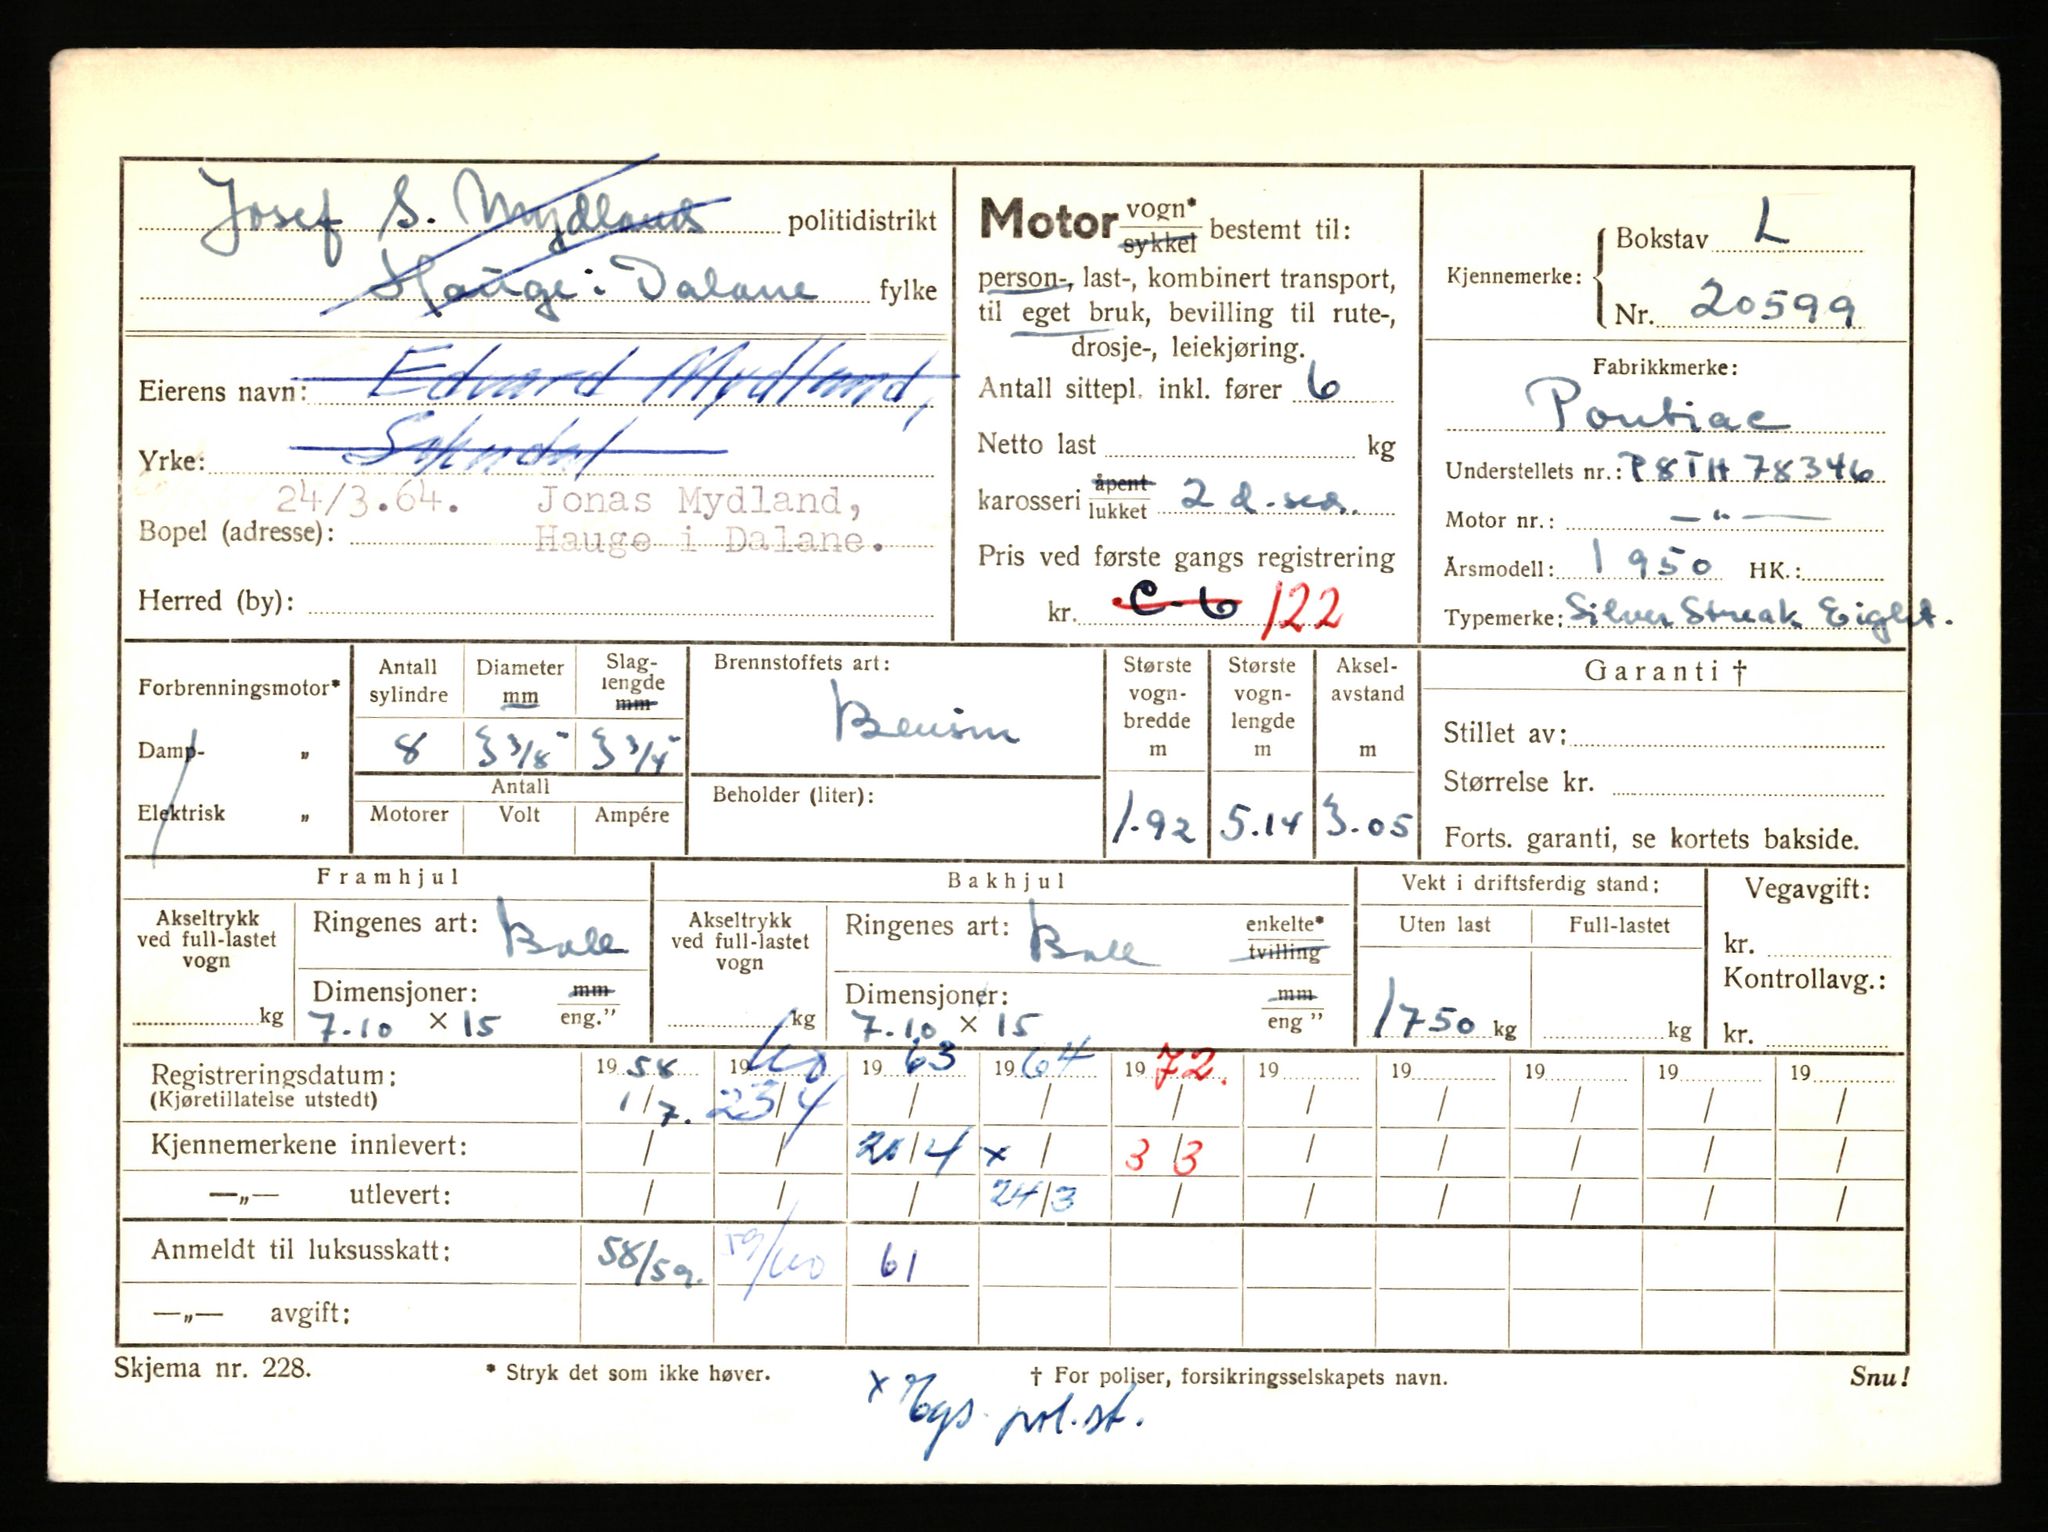 Josef S. Mydland politidistrikt
Hauge i Dalane fylke
Eierens navn: Edvard Mydland,
Yrke: Sokndal
24/3.64. Jonas Mydland,
Bopel (adresse): Hauge i Dalane.
Herred (by):
Motor vogn* sykkel bestemt til:
person-, last-, kombinert transport,
til eget bruk, bevilling til rute-,
drosje-, leiekjøring.
Antall sittepl. inkl. fører 6
Netto last kg
karosseri åpent lukket 2 d. sed.
Pris ved første gangs registrering
kr. C-6 122
Kjennemerke: Bokstav L
Nr. 20599
Fabrikkmerke:
Pontiac
Understellets nr.: P8TH 78346
Motor nr.: —"—
Årsmodell: 1950 HK.:
Typemerke: Silver Streak Eight.
Forbrenningsmotor*
Damp- „
Elektrisk „
Antall sylindre
Diameter mm
Slag-lengde mm
8 3 3/8" 3 3/4"
Antall
Motorer Volt Ampére
Brennstoffets art:
Bensin
Beholder (liter):
Største vogn-bredde m
Største vogn-lengde m
Aksel-avstand m
1.92 5.14 3.05
Garanti †
Stillet av:
Størrelse kr.
Forts. garanti, se kortets bakside.
Framhjul
Akseltrykk ved full-lastet vogn
kg
Ringenes art: Ball
Dimensjoner: mm eng."
7.10 × 15
Bakhjul
Akseltrykk ved full-lastet vogn
kg
Ringenes art: Ball enkelte* tvilling
Dimensjoner: mm eng "
7.10 × 15
Vekt i driftsferdig stand:
Uten last Full-lastet
1750 kg kg
Vegavgift:
kr.
Kontrollavg.:
kr.
Registreringsdatum: 1958 1960 1963 1964 1972. 19 19 19 19 19
(Kjøretillatelse utstedt) 1/7. 25/4 / / / / / / / /
Kjennemerkene innlevert: / / 20/4 x / 3/3 / / / / /
—„— utlevert: / / / 24/3 / / / / / /
Anmeldt til luksusskatt: 58/59. 59/60 61
—„— avgift:
Skjema nr. 228. * Stryk det som ikke høver. † For poliser, forsikringsselskapets navn. Snu!
x pol.st.